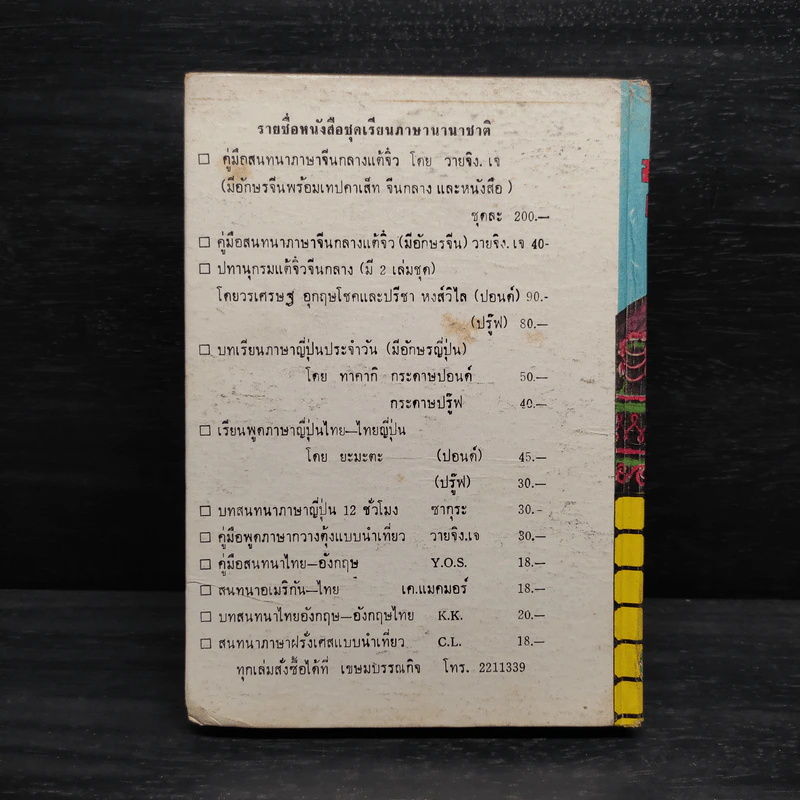 รายชื่อหนังสือชุดเรียนภาษานานาชาติ
คู่มือสนทนาภาษาจีนกลางแต้จิ๋ว โดย วายจิง.เจ
(มีอักษรจีนพร้อมเทปคาเส็ท จีนกลาง และหนังสือ)
ชุดละ 200.—
คู่มือสนทนาภาษาจีนกลางแต้จิ๋ว (มีอักษรจีน) วายจิง.เจ 40-
ปทานุกรมแต้จิ๋วจีนกลาง (มี 2 เล่มชุด)
โดยวรเศรษฐ อุกฤษโชคและปรีชา หงส์วิไล (ปอนด์) 90.-
(ปรู๊ฟ) 80.—
บทเรียนภาษาญี่ปุ่นประจำวัน (มีอักษรญี่ปุ่น)
โดย ทาคากิ กระดาษปอนด์ 50.—
กระดาษปรู๊ฟ 40.—
เรียนพูดภาษาญี่ปุ่นไทย—ไทยญี่ปุ่น
โดย ยะมะตะ (ปอนด์) 45.—
(ปรู๊ฟ) 30.—
บทสนทนาภาษาญี่ปุ่น 12 ชั่วโมง ซากุระ 30.-
คู่มือพูดภาษากวางตุ้งแบบนำเที่ยว วายจิง.เจ 30.—
คู่มือสนทนาไทย—อังกฤษ Y.O.S. 18.—
สนทนาอเมริกัน—ไทย เค.แมคมอร์ 18.—
บทสนทนาไทยอังกฤษ—อังกฤษไทย K.K. 20.—
สนทนาภาษาฝรั่งเศสแบบนำเที่ยว C.L. 18.—
ทุกเล่มสั่งซื้อได้ที่ เขษมบรรณกิจ โทร. 2211339